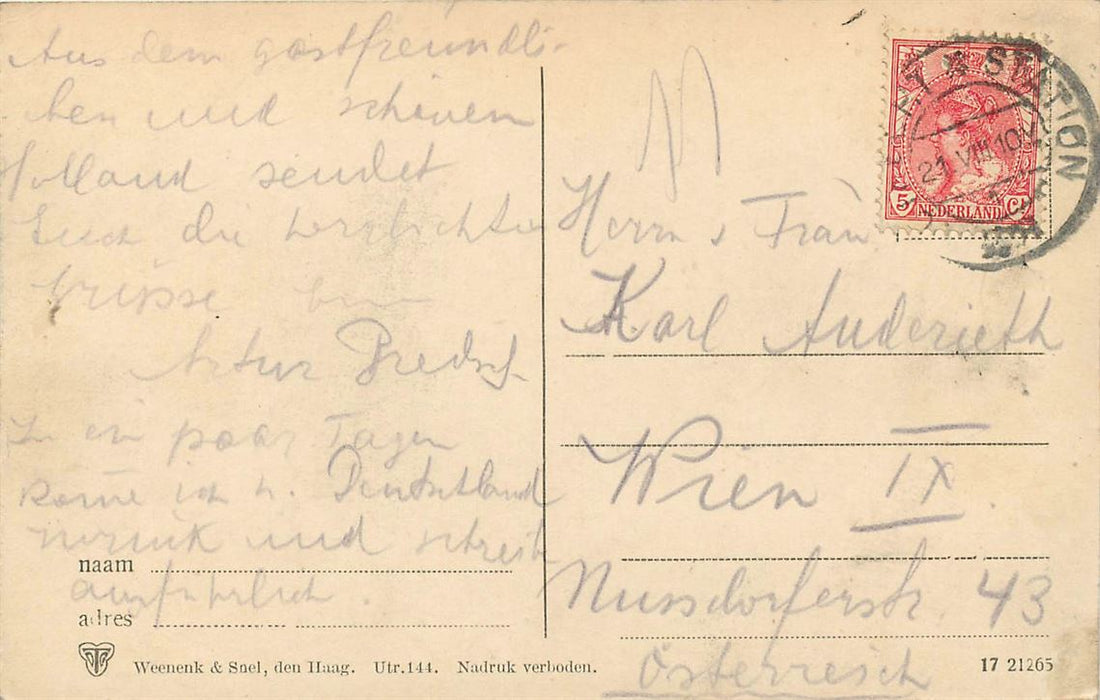 Aus dem gastfreundli-
chen und schönen
Holland sendet
Euch die herzlichsten
Grüsse
Artur
In ein paar Tagen
kome ich n. Deutschland
zurück und schreib
ausführlich.
naam
adres
Weenenk & Snel, den Haag. Utr.144. Nadruk verboden.
STATION
21 VIII 10V
5 Ct
NEDERLAND
Herrn u Frau
Karl Auderieth
Wien IX
Nussdorferstr. 43
Österreich
17 21265